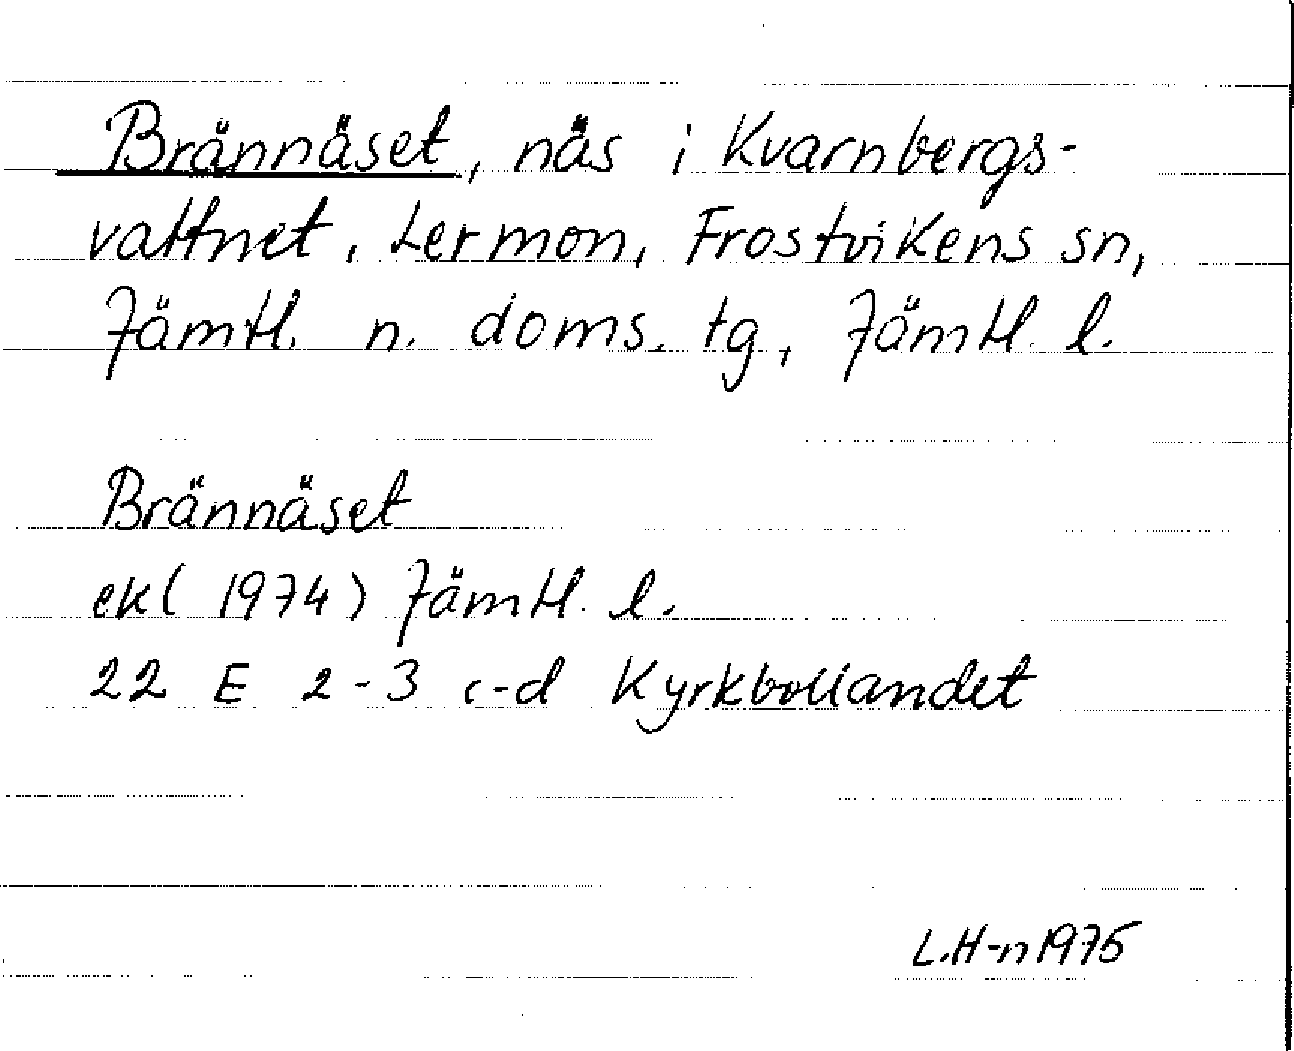 Brännäset, näs i Kvarnbergs-
vattnet, Lermon, Frostvikens sn,
Jämtl. n. doms. tg, Jämtl. l.
Brännäset
ek (1974) Jämtl. l.
22 E 2-3 c-d Kyrkbollandet
L.H-n 1975